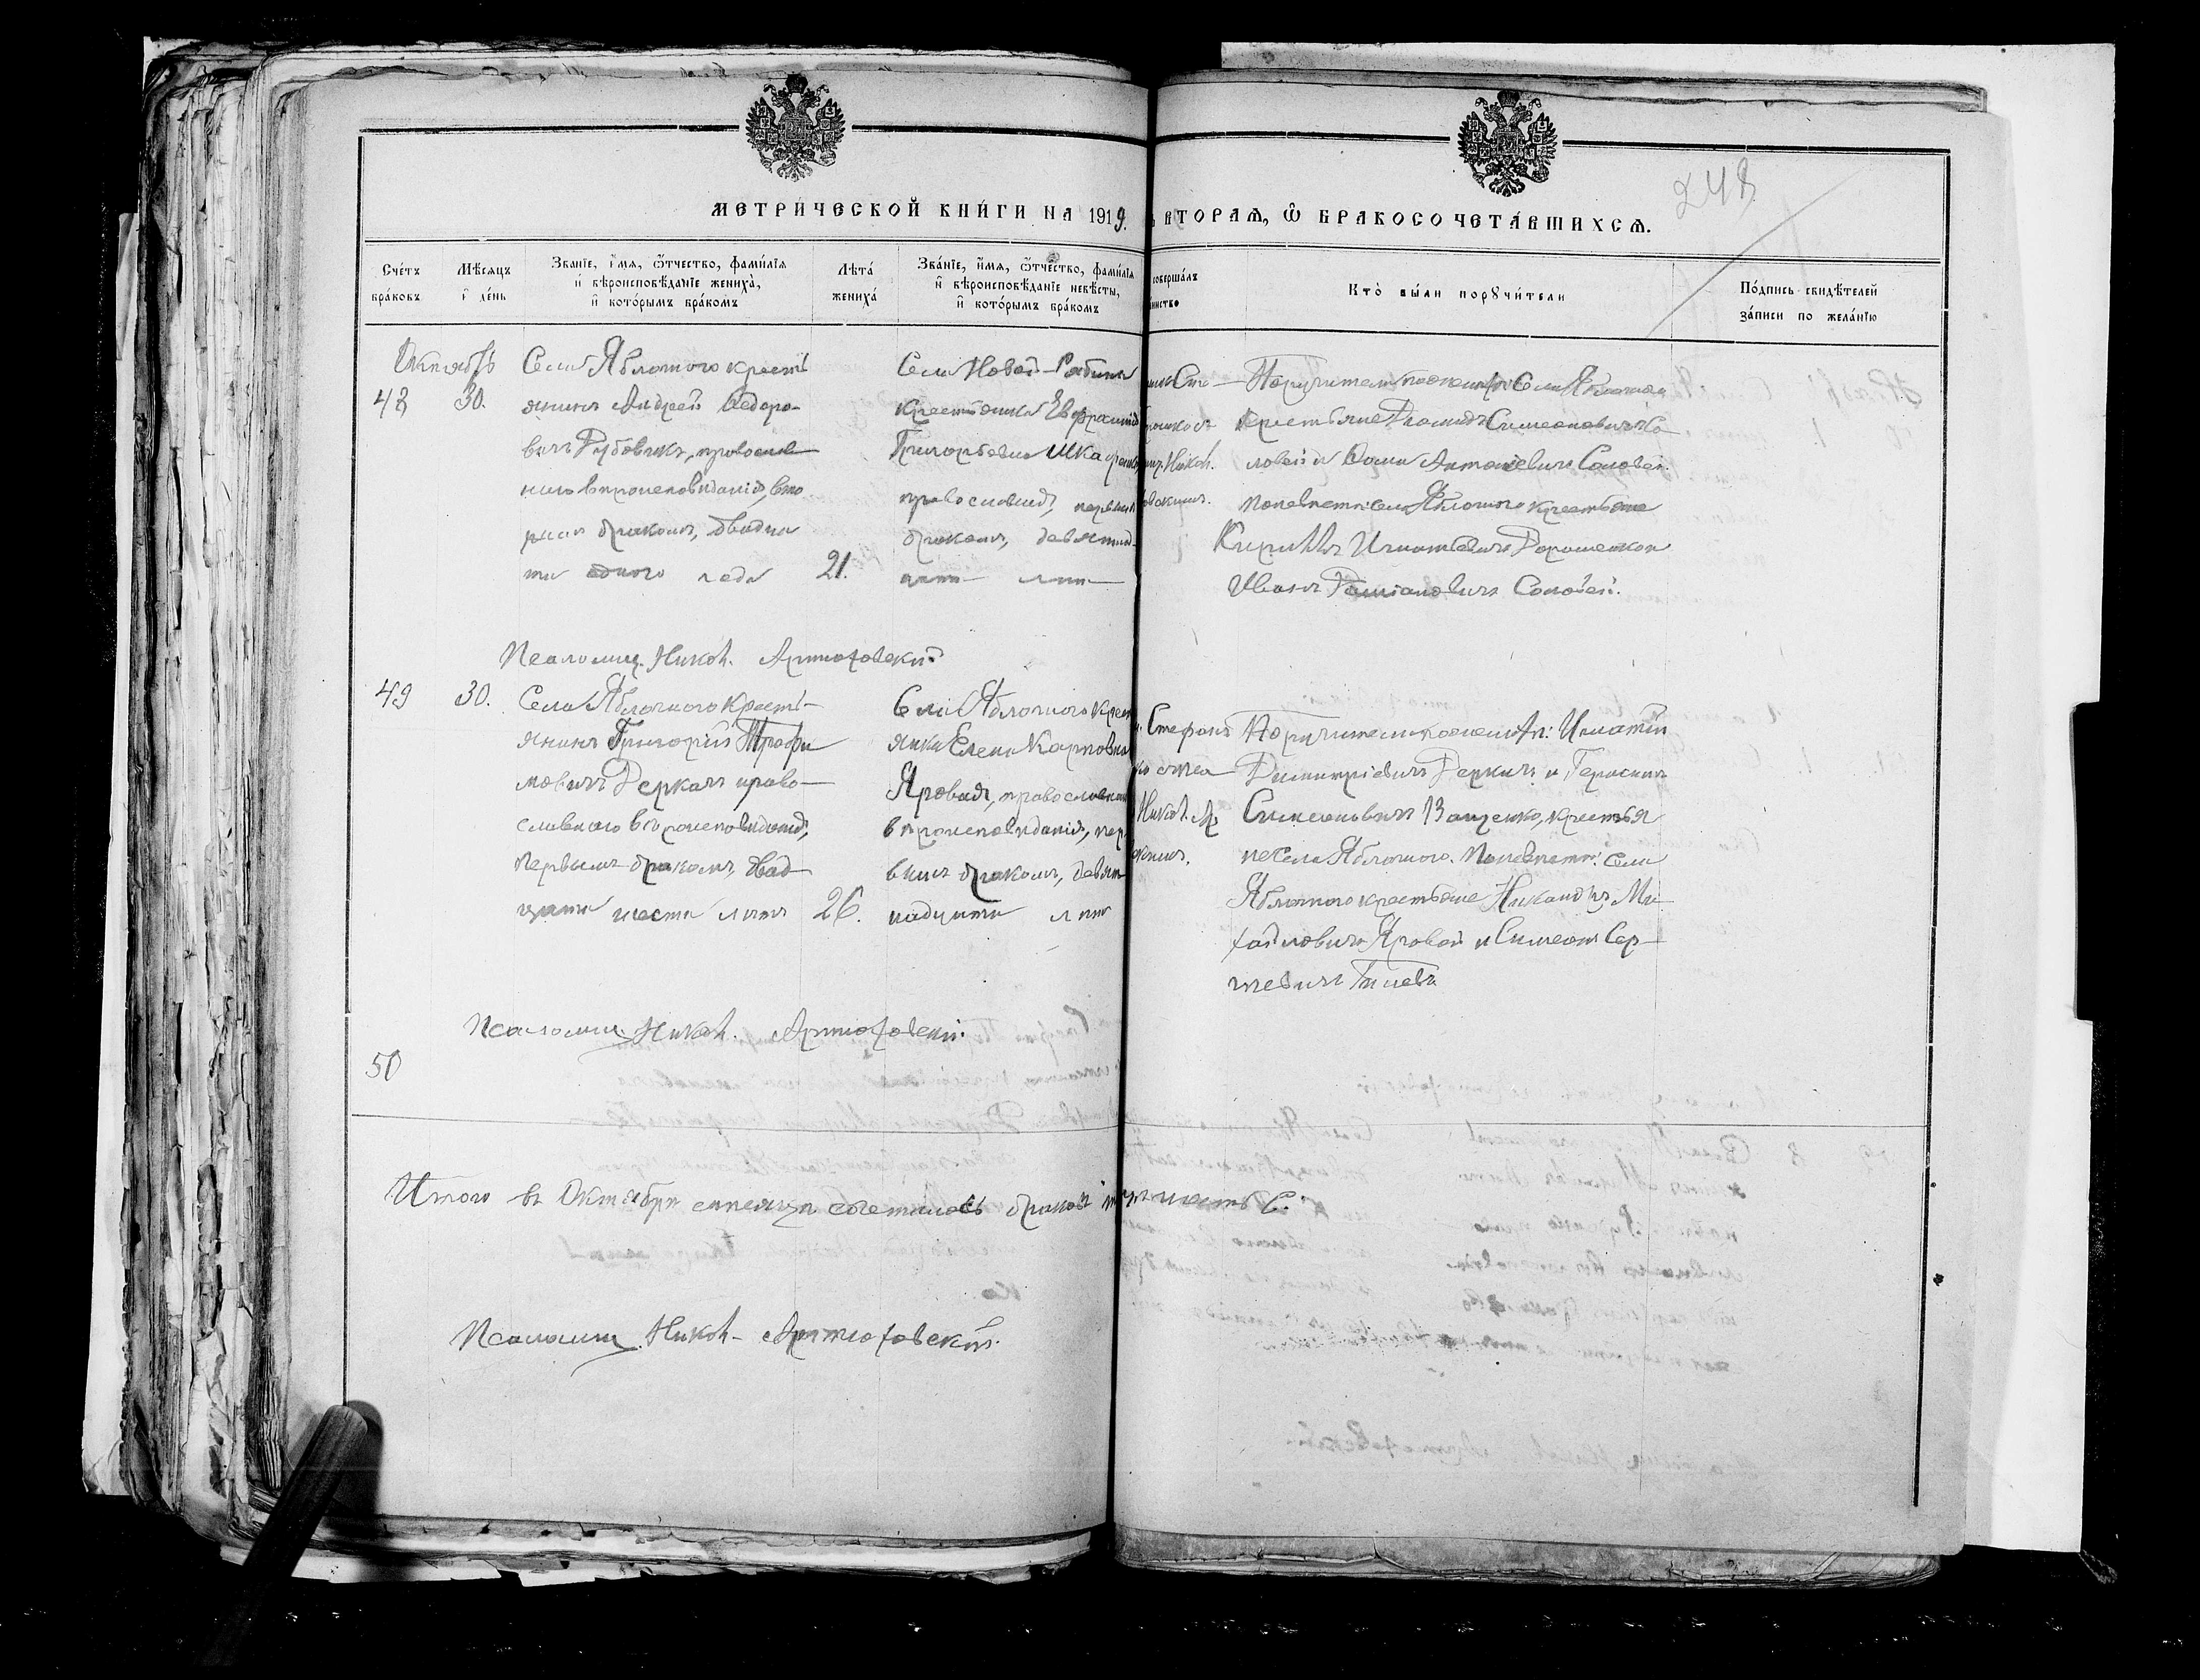 МЕТРИЧЕСКОЙ КНИГИ НА 1919.
ВТОРАЯ, Ѿ БРАКОСОЧЕТАВШИХСЯ.
248
Счетъ браковъ
Мѣсяцъ и день
Званіе, имя, ѿтчество, фамилія и вѣроисповѣданіе жениха, и которымъ бракомъ
Лѣта жениха
Званіе, имя, ѿтчество, фамилія и вѣроисповѣданіе невѣсты, и которымъ бракомъ
совершалъ
Кто были поручители
Подпись свидѣтелей записи по желанію
Октябрь
48
30.
Села Яблочного кресть
янинъ Андрей Ѳедоро-
вичъ православ
наго вѣроисповѣданія, вто
рымъ бракомъ, двадца
ти одного года
21.
Села Новой-Рябины
крестьянка
Григорьевна
православная, первымъ
бракомъ, девятнад-
цати лѣтъ
Никол.
Поручители по женихѣ: Села Яблочного
крестьяне Симеоновичъ Со
ловей и Антоніевичъ Соловей.
По невѣстѣ: села Яблочного крестьяне
Кириллъ Игнатьевичъ Дорошенко и
Иванъ Соловей.
Псаломщ. Никол. Артюховскій
49
30.
Села Яблочного кресть-
янинъ Григорій Трофи
мовичъ Деркачъ право-
славного вѣроисповѣданія,
первымъ бракомъ, двад-
цати шести лѣтъ
26.
Села Яблочного крест
янка Елена Карповна
Яровая, православнаго
вѣроисповѣданія, пер-
вымъ бракомъ, девят-
надцати лѣтъ
Стефанъ
Никол. Ар
Поручители по женихѣ: Игнатій
Димитріевичъ Деркачъ и Герасимъ
Симеоновичъ Ващенко, крестья
не села Яблочного. По невѣстѣ: села
Яблочного крестьяне Никандръ Ми
хайловичъ Яровой и Симеонъ Сер-
гѣевичъ
Псаломщ. Никол. Артюховскій.
50
Итого въ Октябрѣ мѣсяцѣ сочеталось браковъ шесть 6.
Псаломщ. Никол. Артюховскій.